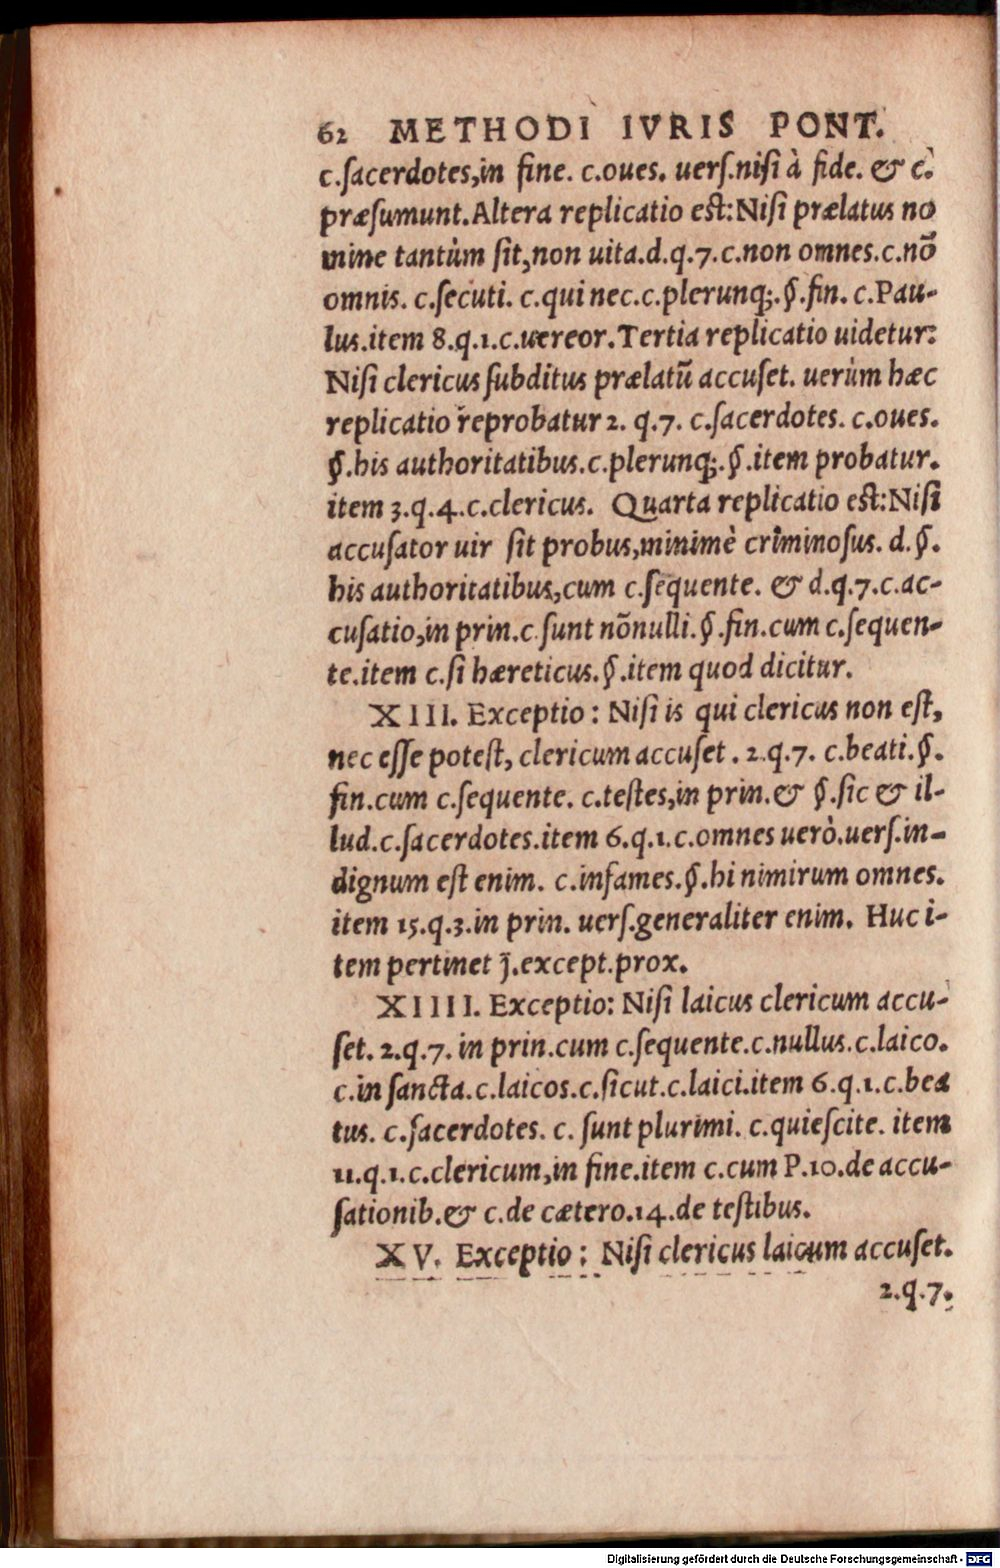 62 METHODI IVRIS PONT.
c.ſacerdotes,in fine. c.oues. uerſ.niſi à fide. & c.
præſumunt.Altera replicatio est:Niſi prælatus no
mine tantùm ſit,non uita.d.q.7.c.non omnes.c.nõ
omnis. c.ſecuti. c.qui nec.c.plerunq;.§.fin. c.Pau-
lus.item 8.q.1.c.uereor.Tertia replicatio uidetur:
Niſi clericus ſubditus prælatũ accuſet. uerùm hæc
replicatio reprobatur 2. q.7. c.ſacerdotes. c.oues.
§.his authoritatibus.c.plerunq;.§.item probatur.
item 3.q.4.c.clericus. Quarta replicatio est:Niſi
accuſator uir ſit probus,minimè criminoſus. d.§.
his authoritatibus,cum c.ſequente. & d.q.7.c.ac-
cuſatio,in prin.c.ſunt nõnulli.§.fin.cum c.ſequen-
te.item c.ſi hæreticus.§.item quod dicitur.
XIII. Exceptio: Niſi is qui clericus non eſt,
nec eſſe poteſt, clericum accuſet. 2.q.7. c.beati.§.
fin.cum c.ſequente. c.teſtes,in prin.& §.ſic & il-
lud.c.ſacerdotes.item 6.q.1.c.omnes uerò.uerſ.in-
dignum eſt enim. c.infames.§.hi nimirum omnes.
item 15.q.3.in prin. uerſ.generaliter enim. Huc i-
tem pertinet j̃.except.prox.
XIIII. Exceptio: Niſi laicus clericum accu-
ſet. 2.q.7. in prin.cum c.ſequente.c.nullus.c.laico.
c.in ſancta.c.laicos.c.ſicut.c.laici.item 6.q.1.c.bea
tus. c.ſacerdotes. c. ſunt plurimi. c.quieſcite. item
11.q.1.c.clericum,in fine.item c.cum P.10.de accu-
ſationib.& c.de cætero.14.de teſtibus.
XV. Exceptio: Niſi clericus laicum accuſet.
2.q.7.
Digitalisierung gefördert durch die Deutsche Forschungsgemeinschaft - DFG